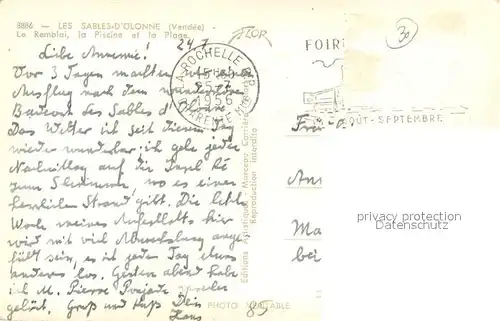 8886 - LES SABLES-D'OLONNE (Vendée) -
Le Remblai, la Piscine et la Plage.
24.7
FLOR
30
LA ROCHELLE
25-7
1956
FOIRE
AOÛT-SEPTEMBRE
Liebe Annemie!
Vor 3 Tagen machten wir einen
Ausflug nach dem wundervollen
Badeort des Sables d'Olonne
Das Wetter ist seit diesem Tag
wieder wunderbar ich gehe jeden
Nachmittag auf die Insel Ré
zum Schwimmen, wo es einen
herrlichen Strand gibt. Die letzte
Woche meines Aufenthalts hier
wird mit viel Abwechslung ange
füllt sein, es ist jeden Tag etwas
anderes los. Gestern abend habe
ich M. Pierre Poujade sprechen
gehört. Gruß und Kuß Dein
Hans
Editions Artistiques Marceau Carrière
Reproduction interdite
Ma
bei
privacy protection
Datenschutz
PHOTO VÉRITABLE
85